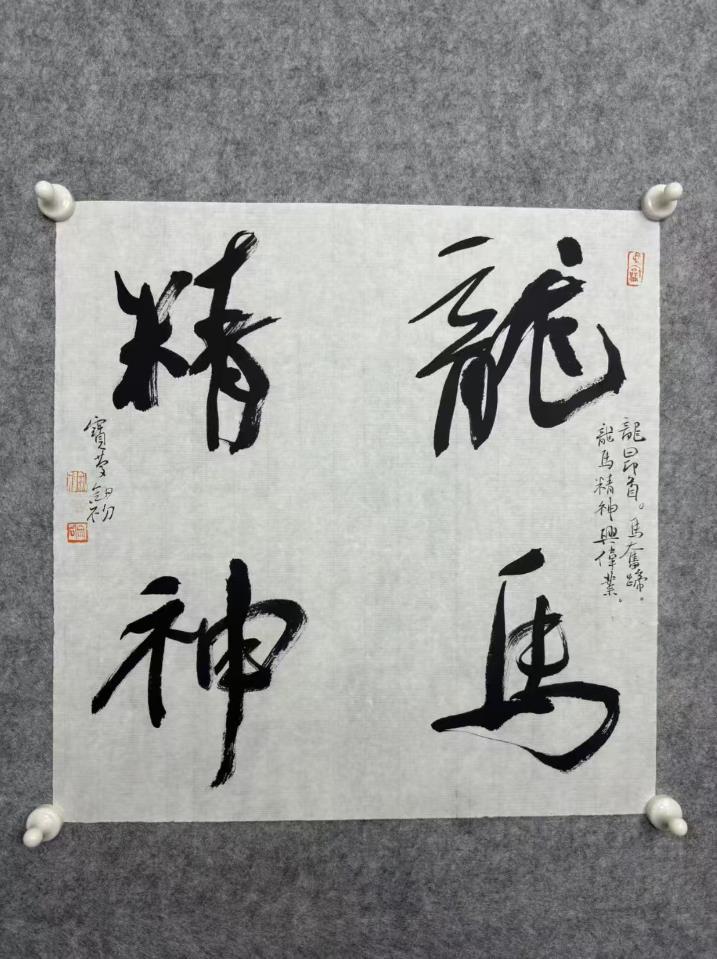 龍馬
精神
龍昂首。馬奮蹄。
龍馬精神興偉業。
寶